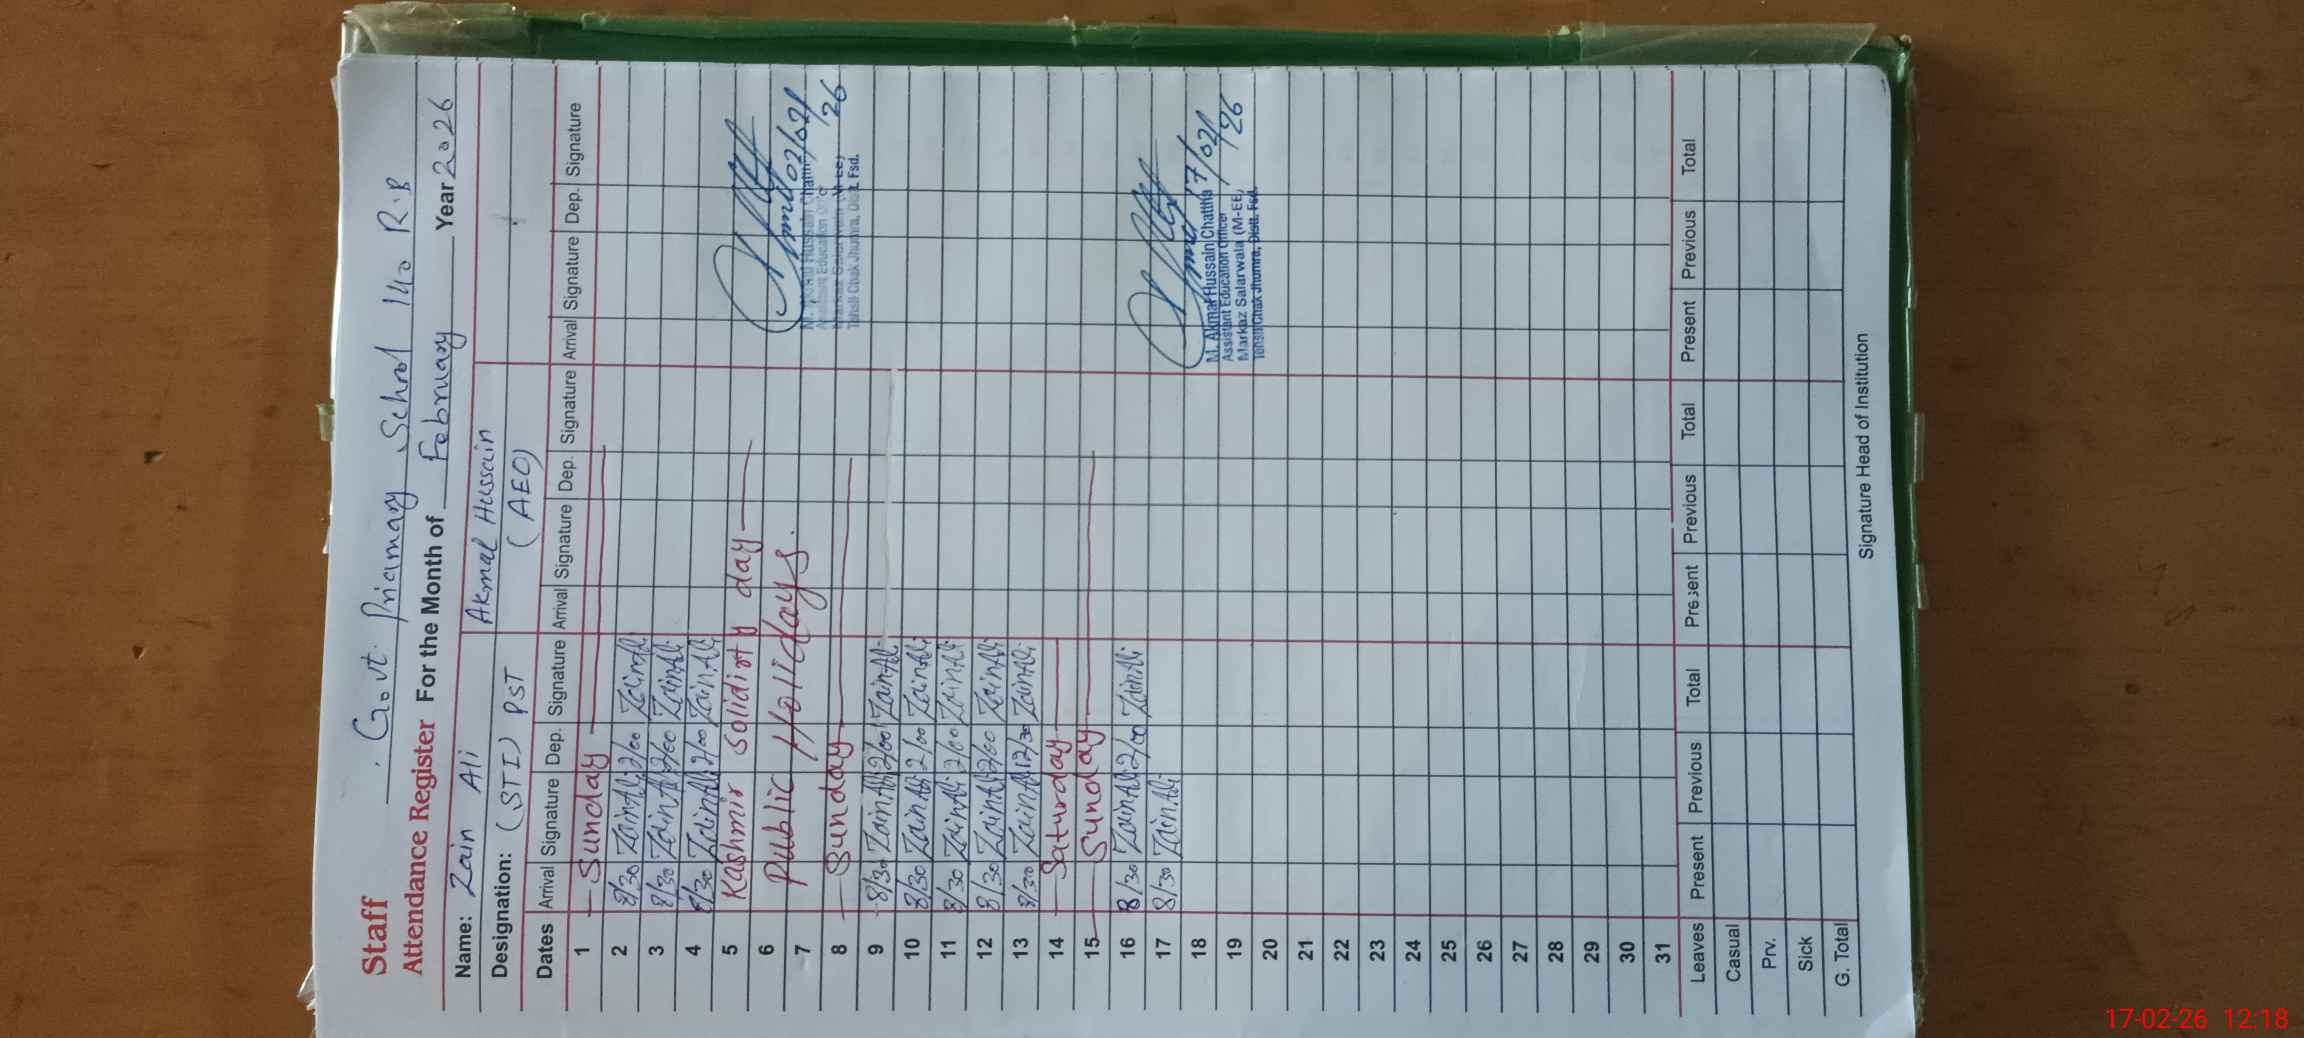 Govt. Primary School 140 R.B
Staff
Attendance Register For the Month of February Year 2026
Name: Zain Ali Akmal Hussain
Designation: (STI) PST (AEO)
Dates Arrival Signature Dep. Signature Arrival Signature Dep. Signature Arrival Signature Dep. Signature
1 Sunday
2 8/30 Zain Ali 2/00 Zain Ali
3 8/30 Zain Ali 2/00 Zain Ali
4 8/30 Zain Ali 2/00 Zain Ali
5 Kashmir solidirty day
6 Public Hollidays.
7
8 Sunday
9 8/30 Zain Ali 2/00 Zain Ali
10 8/30 Zain Ali 2/00 Zain Ali
11 8/30 Zain Ali 2/00 Zain Ali
12 8/30 Zain Ali 2/00 Zain Ali
13 8/30 Zain Ali 12/30 Zain Ali
14 Saturday
15 Sunday
16 8/30 Zain Ali 2/00 Zain Ali
17 8/30 Zain Ali
18
19
20
21
22
23
24
25
26
27
28
29
30
31
02/02/26
M. Akmal Hussain Chattha
Assistant Education Officer
Markaz Salarwala (M-EE)
Tehsil Chak Jhumra, Distt. Fsd.
17/02/26
M. Akmal Hussain Chattha
Assistant Education Officer
Markaz Salarwala (M-EE)
Tehsil Chak Jhumra, Distt. Fsd.
Leaves Present Previous Total Present Previous Total Present Previous Total
Casual
Prv.
Sick
G. Total
Signature Head of Institution
17-02-26 12:18